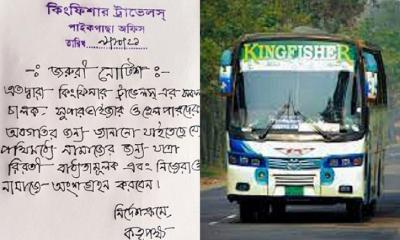 কিংফিশার ট্রাভেলস্
পাইকগাছা অফিস
তারিখ
-ঃ জরুরী নোটিশ ঃ-
এতদ্বারা কিংফিশার ট্রাভেলস্ এর সকল
চালক, সুপারভাইজার ও হেলপারদের
অবগতির জন্য জানানো যাইতেছে যে
পথিমধ্যে নামাজের জন্য যাত্রা
বিরতী বাধ্যতামূলক এবং নিজেরাও
নামাজে অংশগ্রহন করবেন।
নির্দেশক্রমে,
কতৃপক্ষ
KINGFISHER